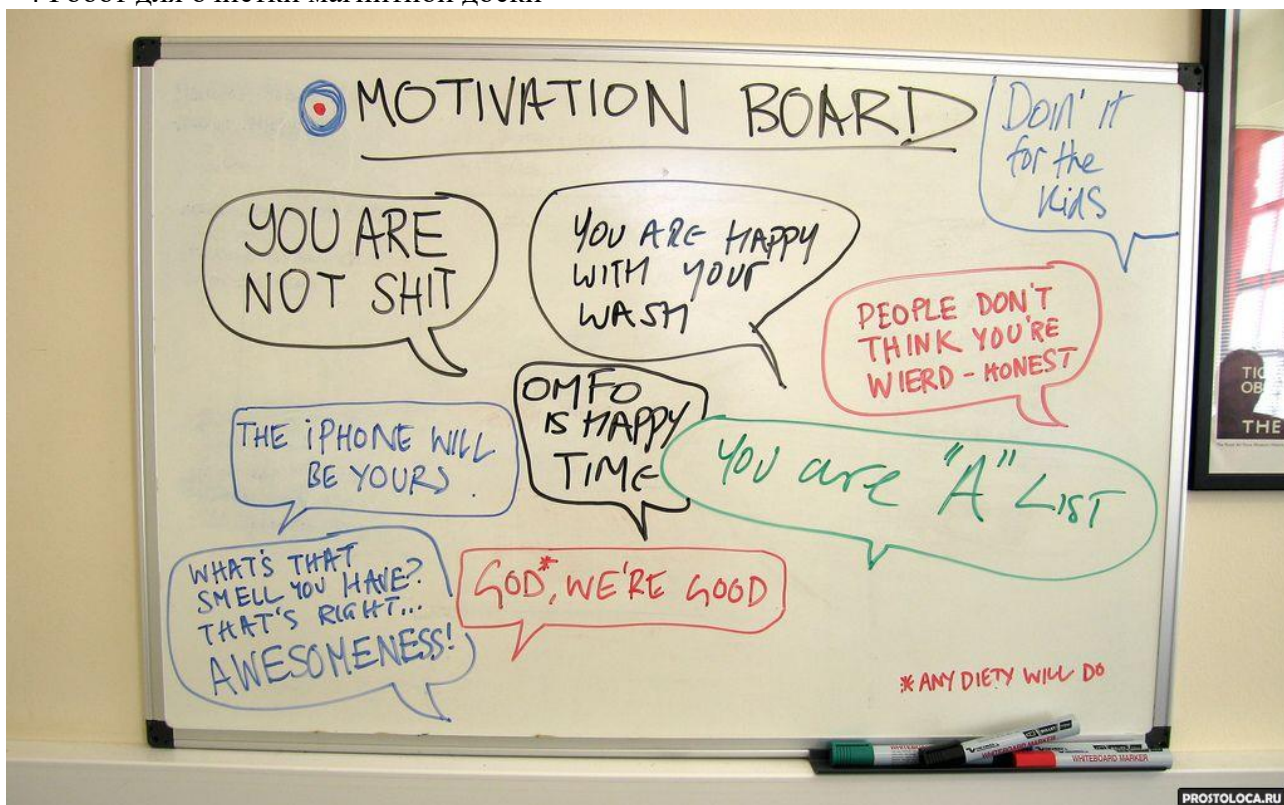 Робот для очистки магнитной доски
MOTIVATION BOARD
DOIN' IT
for the
KIDS
YOU ARE
NOT SHIT
YOU ARE HAPPY
WITH YOUR
WASH
PEOPLE DON'T
THINK YOU'RE
WIERD - HONEST
OMFO
IS HAPPY
TIME
THE iPHONE WILL
BE YOURS.
YOU are "A" LIST
WHAT'S THAT
SMELL YOU HAVE?
THAT'S RIGHT...
AWESOMENESS!
GOD*, WE'RE GOOD
* ANY DIETY WILL DO
THE
WHITEBOARD MARKER
WHITEBOARD MARKER
PROSTOLOCA.RU